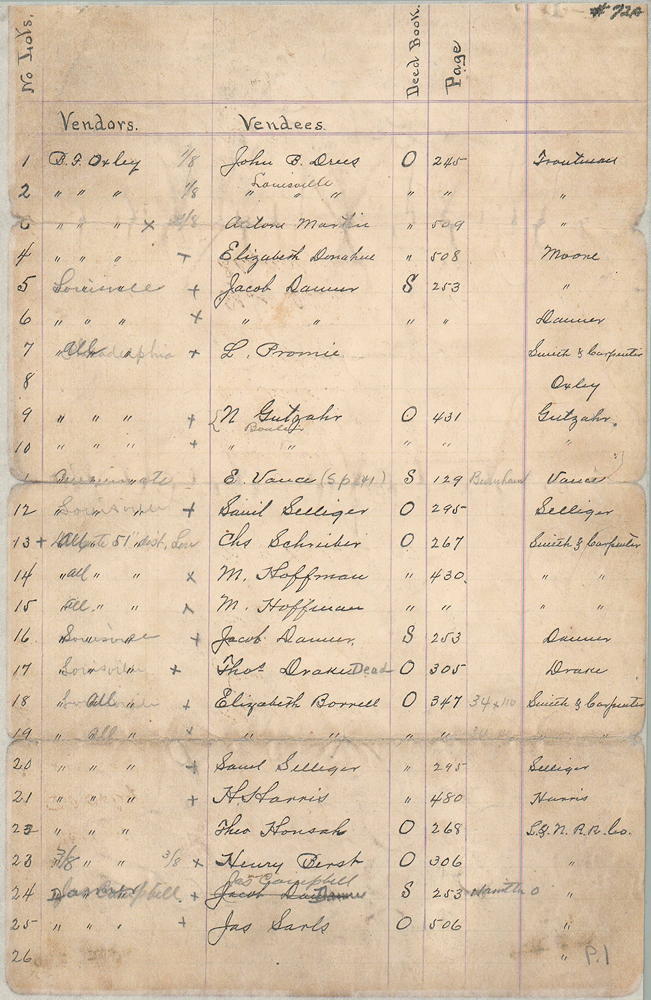 # 72A
No Lots. Deed Book. Page
Vendors. Vendees.
1 B. F. Oxley 1/8 John B. Drees O 245 Troutman
Louisville
2 " " " 1/8 " " " " " "
" " " x Antone Martin " 509 "
4 " " " + Elizabeth Donahue " 508 Moore
5 Louisville + Jacob Danner S 253 "
6 " " " x " " " " Danner
7 " + L. Promie Smith & Carpenter
8 Oxley
9 " " " + N Gutzahr O 431 Gutzahr.
10 " " " + " " " " "
E. Vance (Sp 241) S 129 Vance
12 " Louisville + Saml Selliger O 295 Selliger
13 + 51" Lou Chs Schreiber O 267 Smith & Carpenter
14 " all " " x M. Hoffman " 430. " "
15 all. " " M. Hoffman " " " "
16 Louisville + Jacob Danner. S 253 Danner
17 Louisville + Thos Drake Dead O 305 Drake
18 " All + Elizabeth Borrell O 347 34 x 110 Smith & Carpenter
19 " all " x " " " " " "
20 " " " + Saml Selliger " 295 Selliger
21 " " " + H Harris " 480 Harris
22 " " " Theo Honsah O 268 L. & N. R. R. Co.
23 3/8 " " 3/8 x Henry Berst O 306 "
Jas Campbell
24 Jas Campbell + Jacob Danner S 253 "
25 " " " + Jas Sarls O 506 "
26 " P. 1